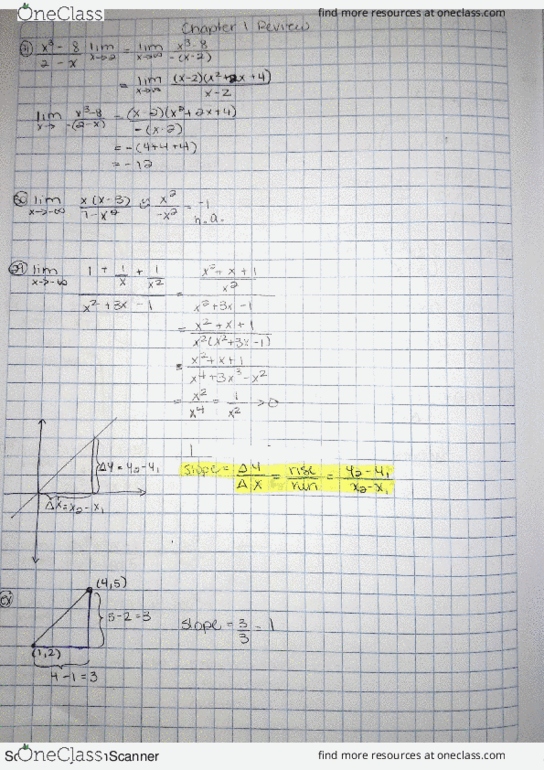 OneClass
find more resources at oneclass.com
Chapter 1 Review
31) x³ - 8 / 2 - x lim x→2 = lim x→∞ x³-8 / -(x-2)
= lim x→∞ (x-2)(x²+2x+4) / x-2
lim x→ x³-8 / -(2-x) = (x-2)(x²+2x+4) / -(x-2)
= -(4+4+4)
= -12
30) lim x→-∞ x(x-3) / 7-x² x² / -x² = -1
h.a.
29) lim x→-∞ 1 + 1/x + 1/x² / x²+3x-1 = x²+x+1 / x² / x²+3x-1
= x²+x+1 / x²(x²+3x-1)
= x²+x+1 / x⁴+3x³-x²
= x²/x⁴ = 1/x² → 0
Δy = y₂-y₁
slope = Δy/Δx = rise/run = y₂-y₁ / x₂-x₁
Δx = x₂-x₁
ex
(4,5)
5-2=3
slope = 3/3 = 1
(1,2)
4-1=3
OneClass
Scanner
find more resources at oneclass.com